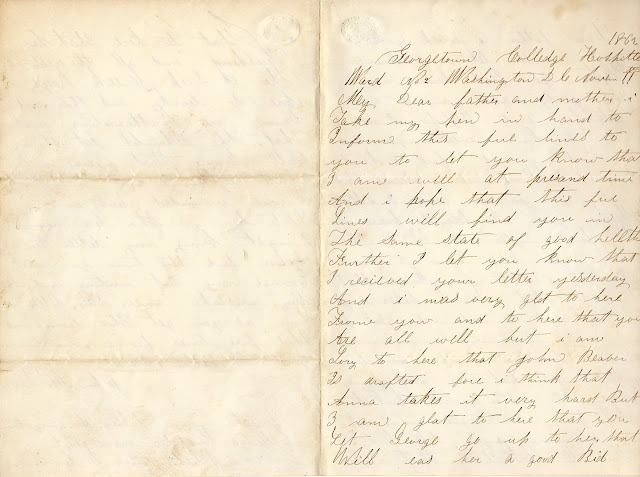 1862
Georgetown Colledge Hospittle
Ward No 2 Washington D C Novem
Mey Dear father and mother i
Take my pen in hand to
Inform this fue lines to
you to let you know that
I am well at presand time
And i hope that this fue
Lines will find you in
The same state of good hellth
Further I let you know that
I recived your letter yesterday
And i was very glat to here
Frome your and to here that you
Are all well but i am
Sory to here that John Beaver
Is drafted fore i think that
Anna takes it very hard But
I am glat to here that you
Let George go up to her that
Will eas her a good Bid